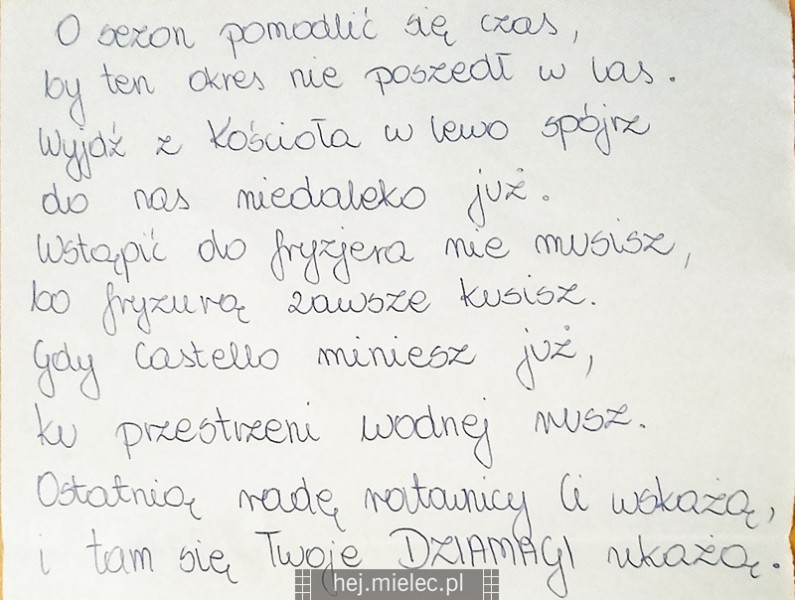 O sezon pomodlić się czas,
by ten okres nie poszedł w las.
Wyjdź z Kościoła w lewo spójrz
do nas niedaleko już.
Wstąpić do fryzjera nie musisz,
bo fryzurą zawsze kusisz.
Gdy Castello miniesz już,
ku przestrzeni wodnej rusz.
Ostatnią radę ratownicy Ci wskażą,
i tam się Twoje DZIAMAGI ukażą.
hej.mielec.pl